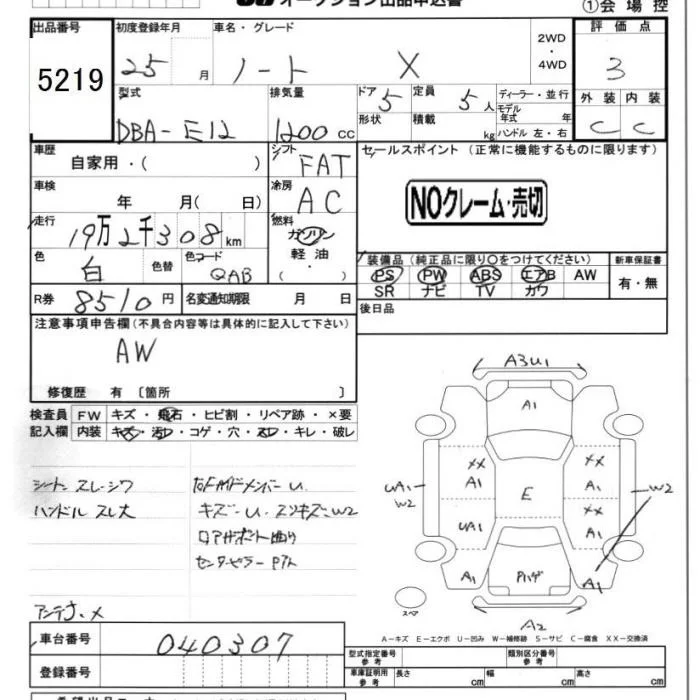 オークション出品申込書
①会場控
出品番号 初度登録年月 車名・グレード 2WD・4WD 評価点
5219 25 月 ノート X 3
型式 排気量 ドア 5 定員 5人 ディーラー・並行 外装 内装
DBA-E12 1200 cc 形状 積載 kg モデル年式 年 ハンドル 左・右 C C
車歴 自家用・( ) シフト FAT セールスポイント (正常に機能するものに限ります)
車検 年 月( 日) 冷房 AC
NOクレーム・売切
走行 19万2千308km 燃料 ガソリン 軽油 ・( )
色 白 色替 色コード QAB
装備品 (純正品に限り○をつけてください) 新車保証書
PS PW ABS エアB AW 有・無
SR ナビ TV カワ
R券 8510円 名変通知期限 月 日
後日品
注意事項申告欄(不具合内容等は具体的に記入して下さい)
AW
修復歴 有 〔箇所 〕
検査員記入欄 FW キズ・飛石・ヒビ割・リペア跡・×要
内装 キズ・汚レ・コゲ・穴・スレ・キレ・破レ
シート スレ・シワ
ハンドル スレ大
キズ・U. スリキズ・W2
ロアサポート曲り
センターピラー
アンテナ.×
A3U1
A1
XX XX
A1 A1
UA1 W2 E W2
XX
UA1 A1
A1 Pハゲ A1
スペア
A2
A-キズ E-エクボ U-凹み W-補修跡 S-サビ C-腐食 XX-交換済
車台番号 040307
型式指定番号 参考 類別区分番号 参考
登録番号 車庫証明用 参考 長さ cm 幅 cm 高さ cm